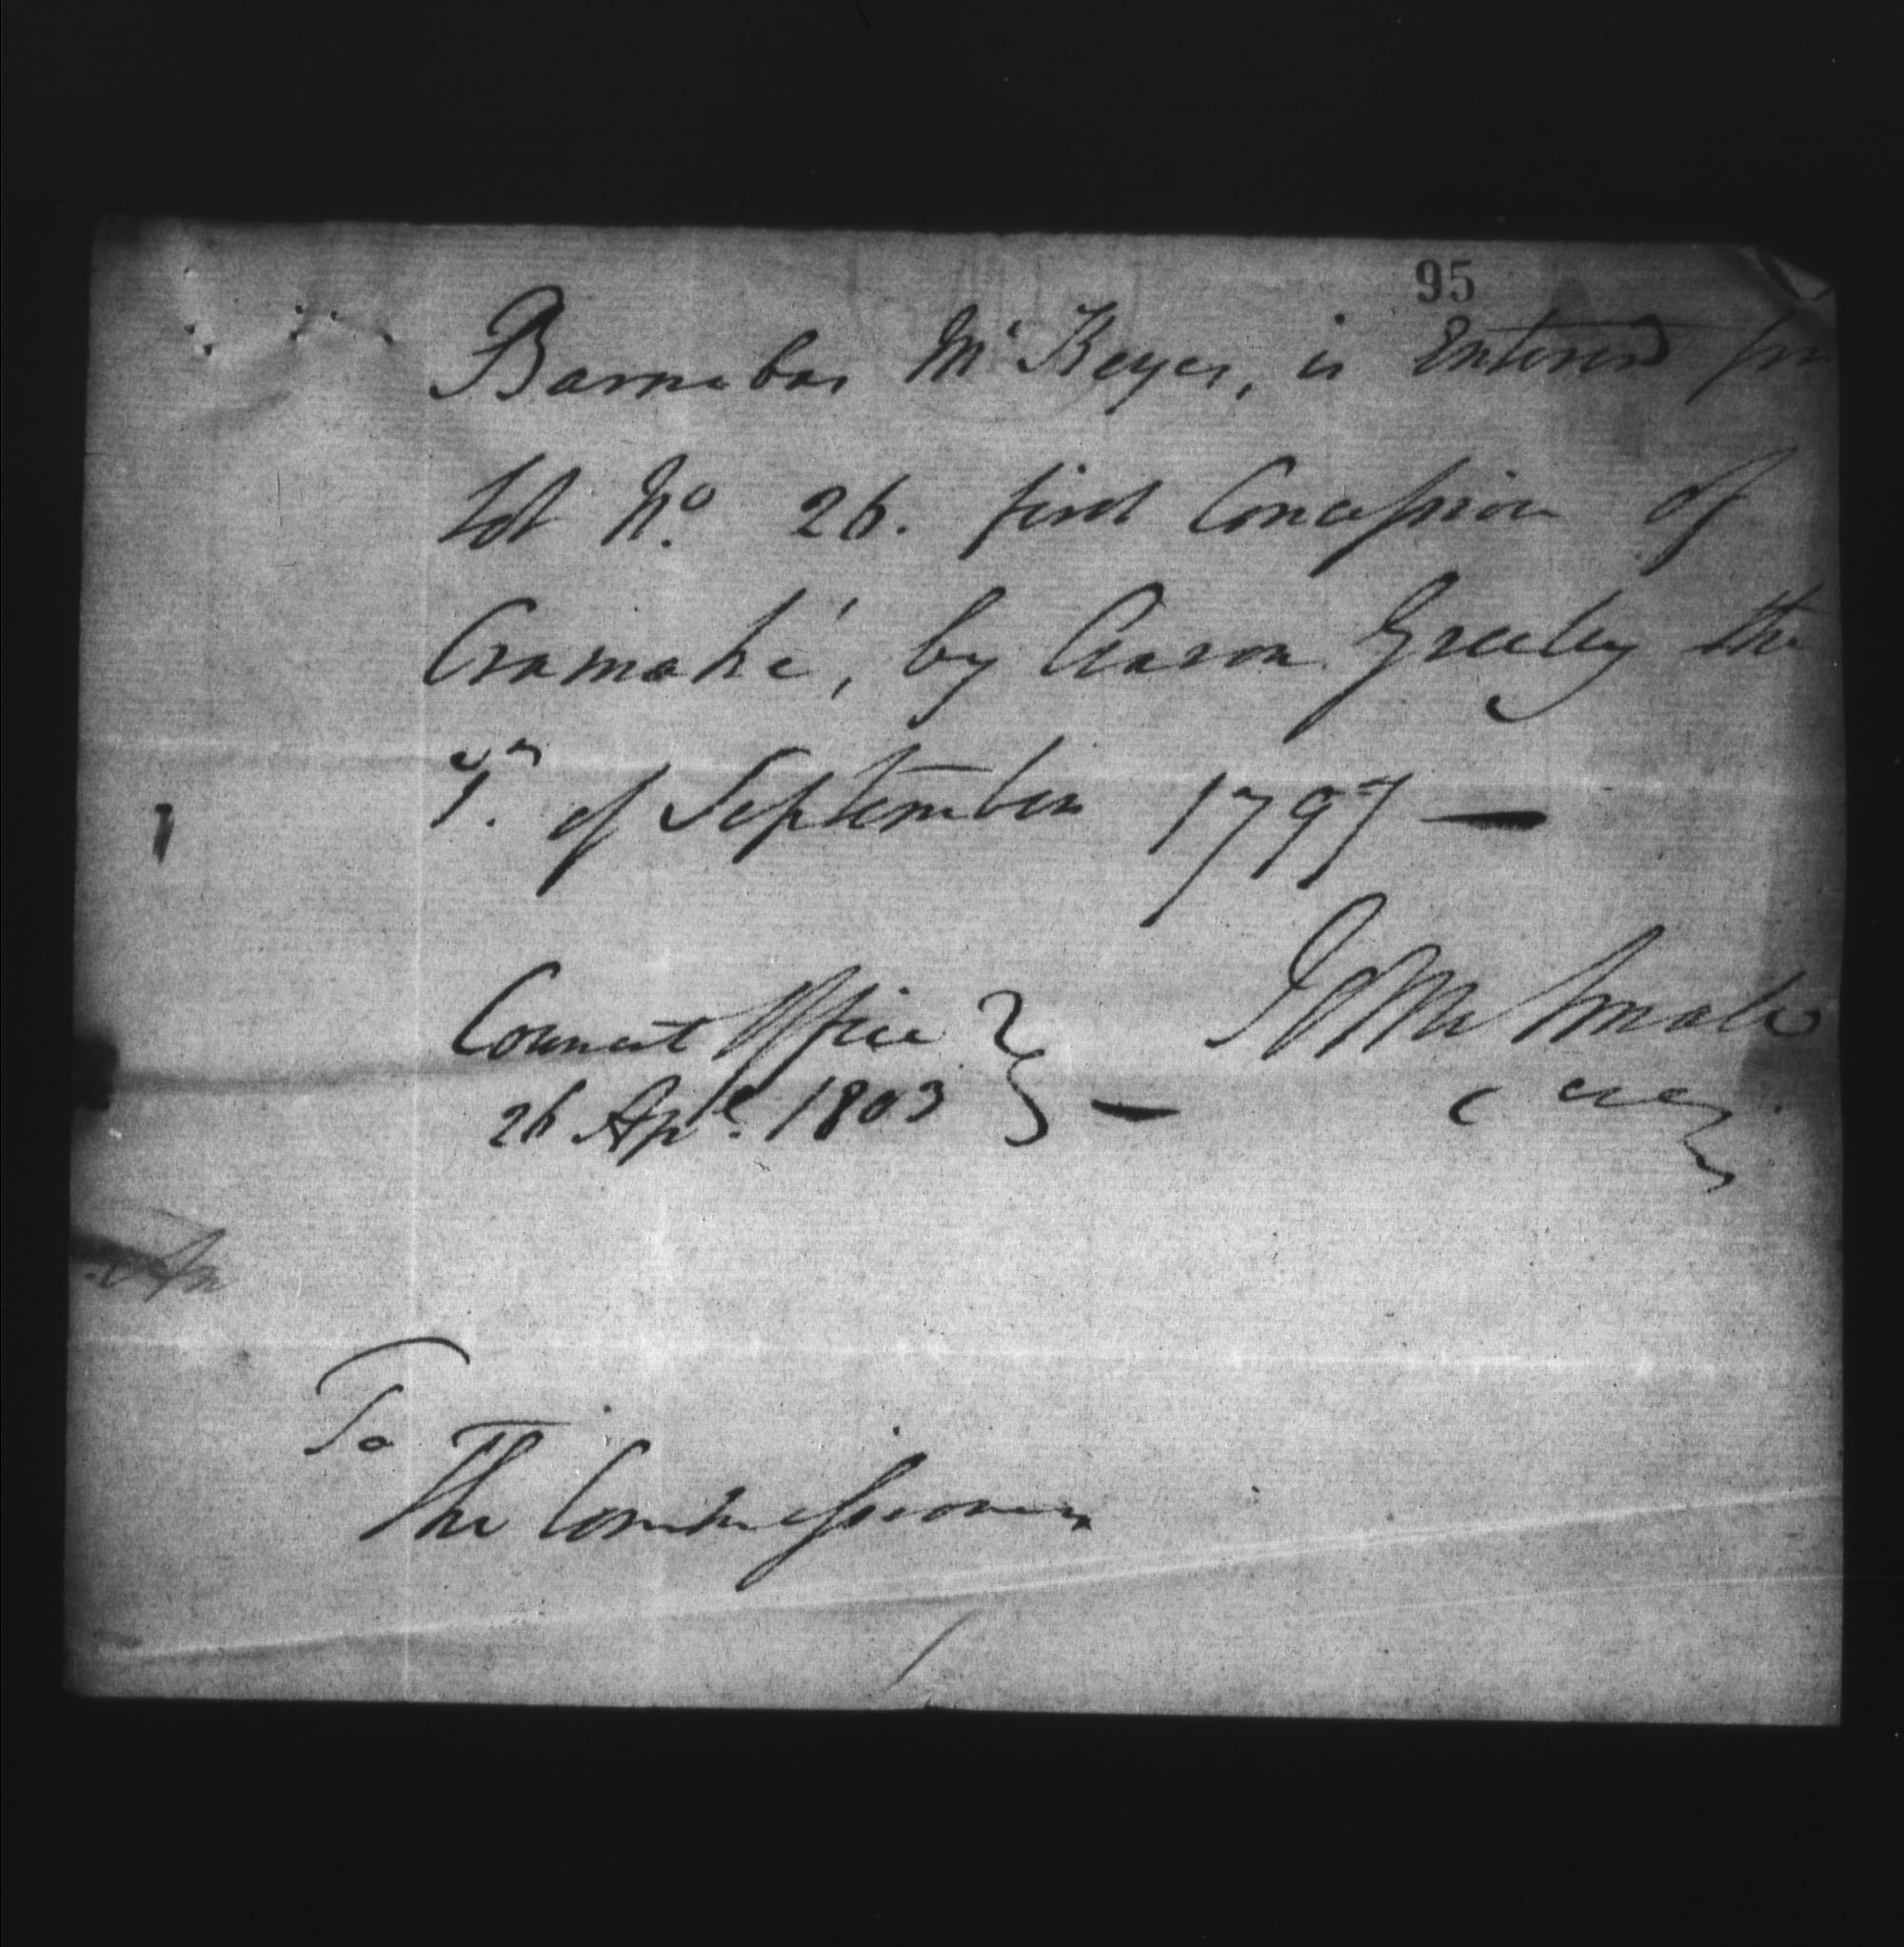 95
Barnabas Mc Keyes, is Entered for
Lot No. 26. first Concession of
Cramahé, by Aaron Greeley the
7th. of September 1797 —
Council Office } John Small
26 Apl. 1803 } — C E C
To
The Commissioners